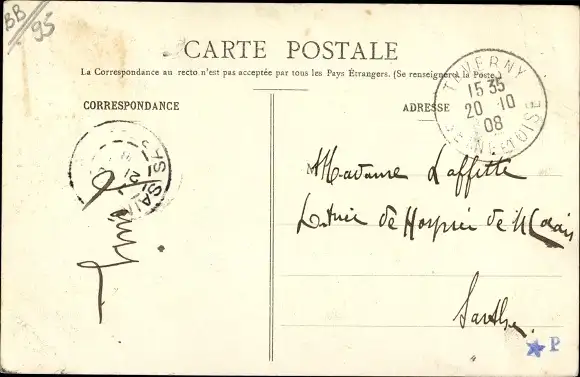 BB
95
CARTE POSTALE
La Correspondance au recto n'est pas acceptée par tous les Pays Étrangers. (Se renseigner à la Poste)
CORRESPONDANCE
ADRESSE
TAVERNY
15 35
20 10
08
SEINE ET OISE
Madame Laffitte
de Hospice de
Sarthe
P